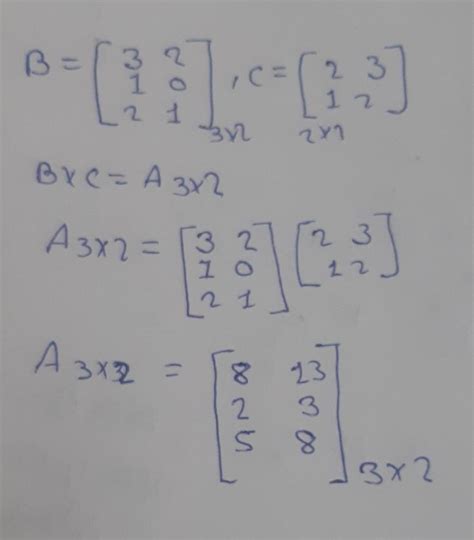 B = [3 2
1 0
2 1]3×2 , C = [2 3
1 2]2×2
B×C = A3×2
A3×2 = [3 2
1 0
2 1] [2 3
1 2]
A3×2 = [8 13
2 3
5 8]3×2